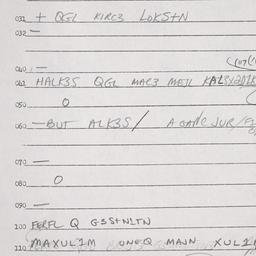 031 + QGL KIRC3 LOKS+N
032 —
040 —
041 HALK3S QGL MAC3 MEJL
050 O
060 —BUT ALK3S/ A GAME JUR/
070 —
080 O
090 —
100 FERFL Q G-3S+NLTN
110 MAXUL1M ONEQ MAJN XUL1